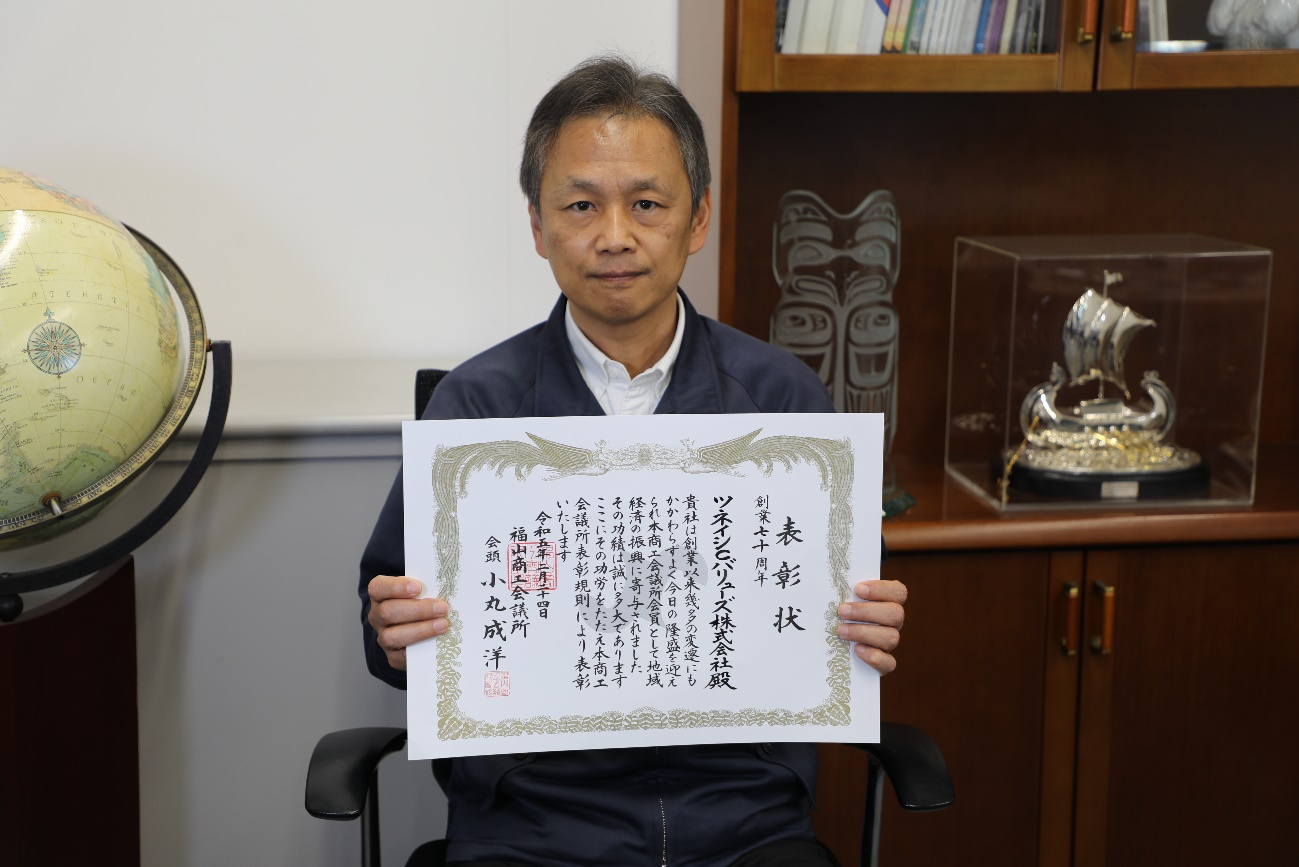 表彰状
創業七十周年
ツネイシCバリューズ株式会社殿
貴社は創業以来幾多の変遷にも
かかわらずよく今日の隆盛を迎え
られ本商工会議所会員として地域
経済の振興に寄与されました
その功績は誠に多大であります
ここにその功労をたたえ本商工
会議所表彰規則により表彰
いたします
令和五年二月二十四日
福山商工会議所
会頭 小丸成洋